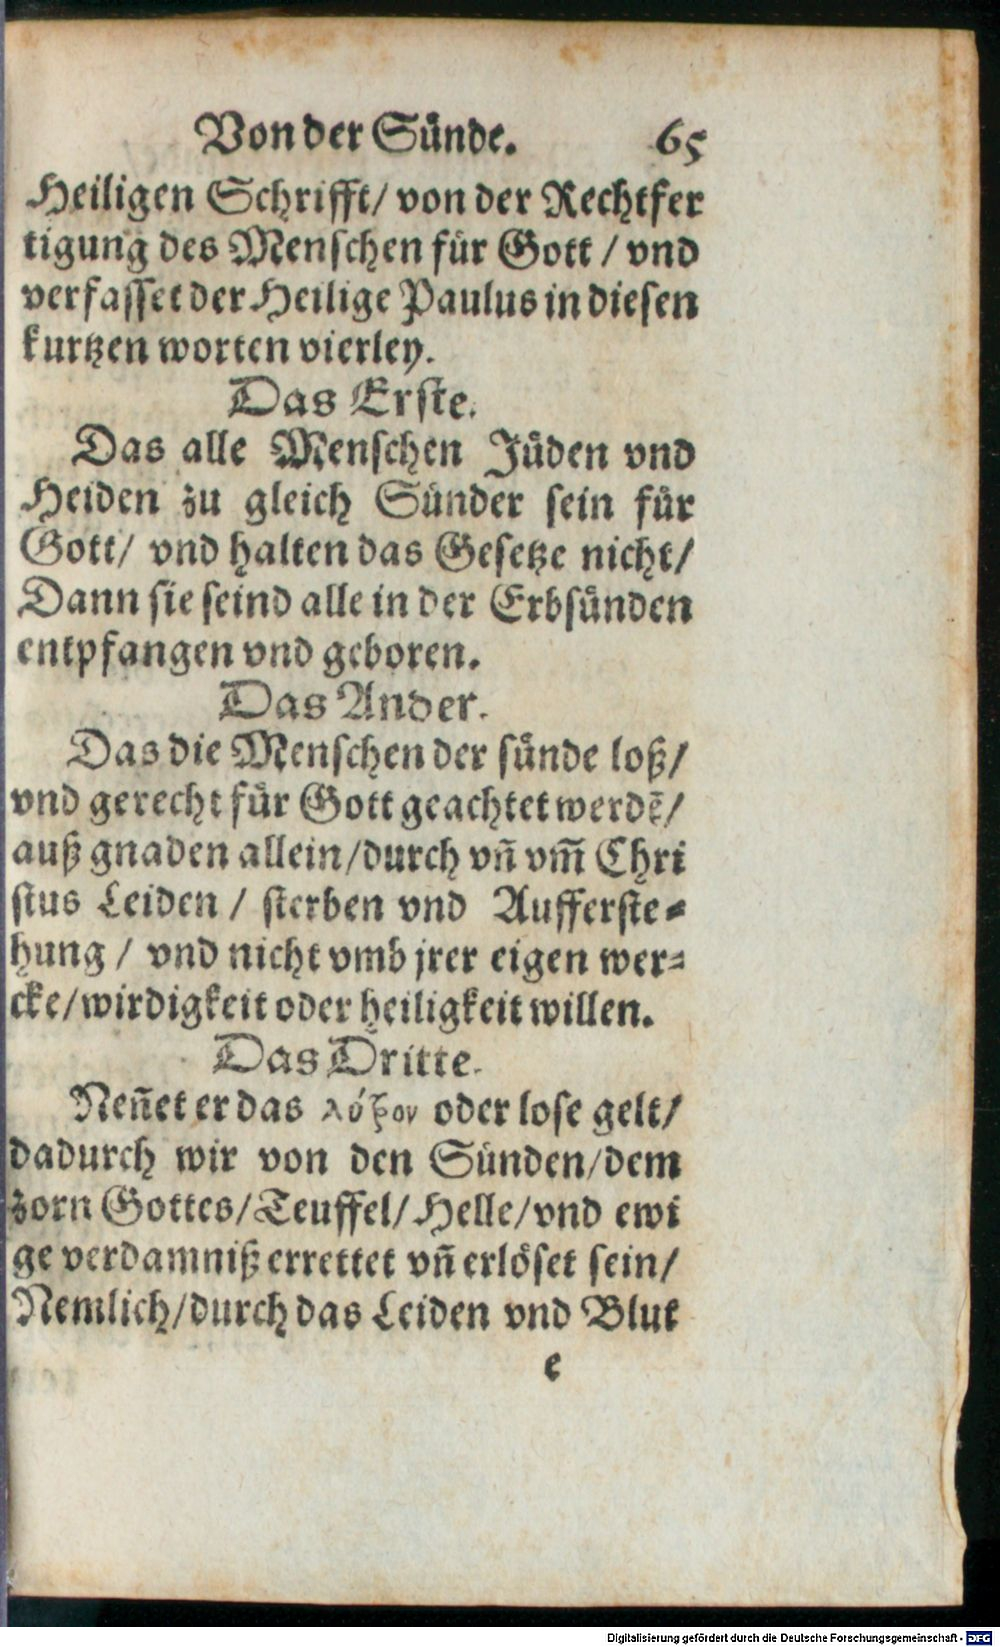 Von der Sünde. 65
Heiligen Schrifft/ von der Rechtfer
tigung des Menschen für Gott / vnd
verfasset der Heilige Paulus in diesen
kurtzen worten vierley.
Das Erste.
Das alle Menschen Jüden vnd
Heiden zu gleich Sünder sein für
Gott/ vnd halten das Gesetze nicht/
Dann sie seind alle in der Erbsünden
entpfangen vnd geboren.
Das Ander.
Das die Menschen der sünde loß/
vnd gerecht für Gott geachtet werdẽ/
auß gnaden allein/durch vñ vm̃ Chri
stus Leiden / sterben vnd Aufferste⸗
hung / vnd nicht vmb jrer eigen wer⸗
cke/wirdigkeit oder heiligkeit willen.
Das Dritte.
Neñet er das λύτρον oder lose gelt/
dadurch wir von den Sünden/dem
zorn Gottes/Teuffel/Helle/vnd ewi
ge verdamniß errettet vñ erlöset sein/
Nemlich/durch das Leiden vnd Blut
e
Digitalisierung gefördert durch die Deutsche Forschungsgemeinschaft - DFG